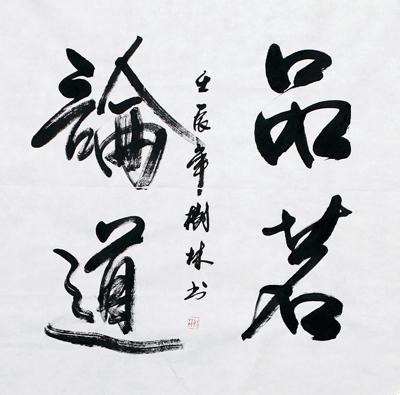 品茗
論道
壬辰年樹林书